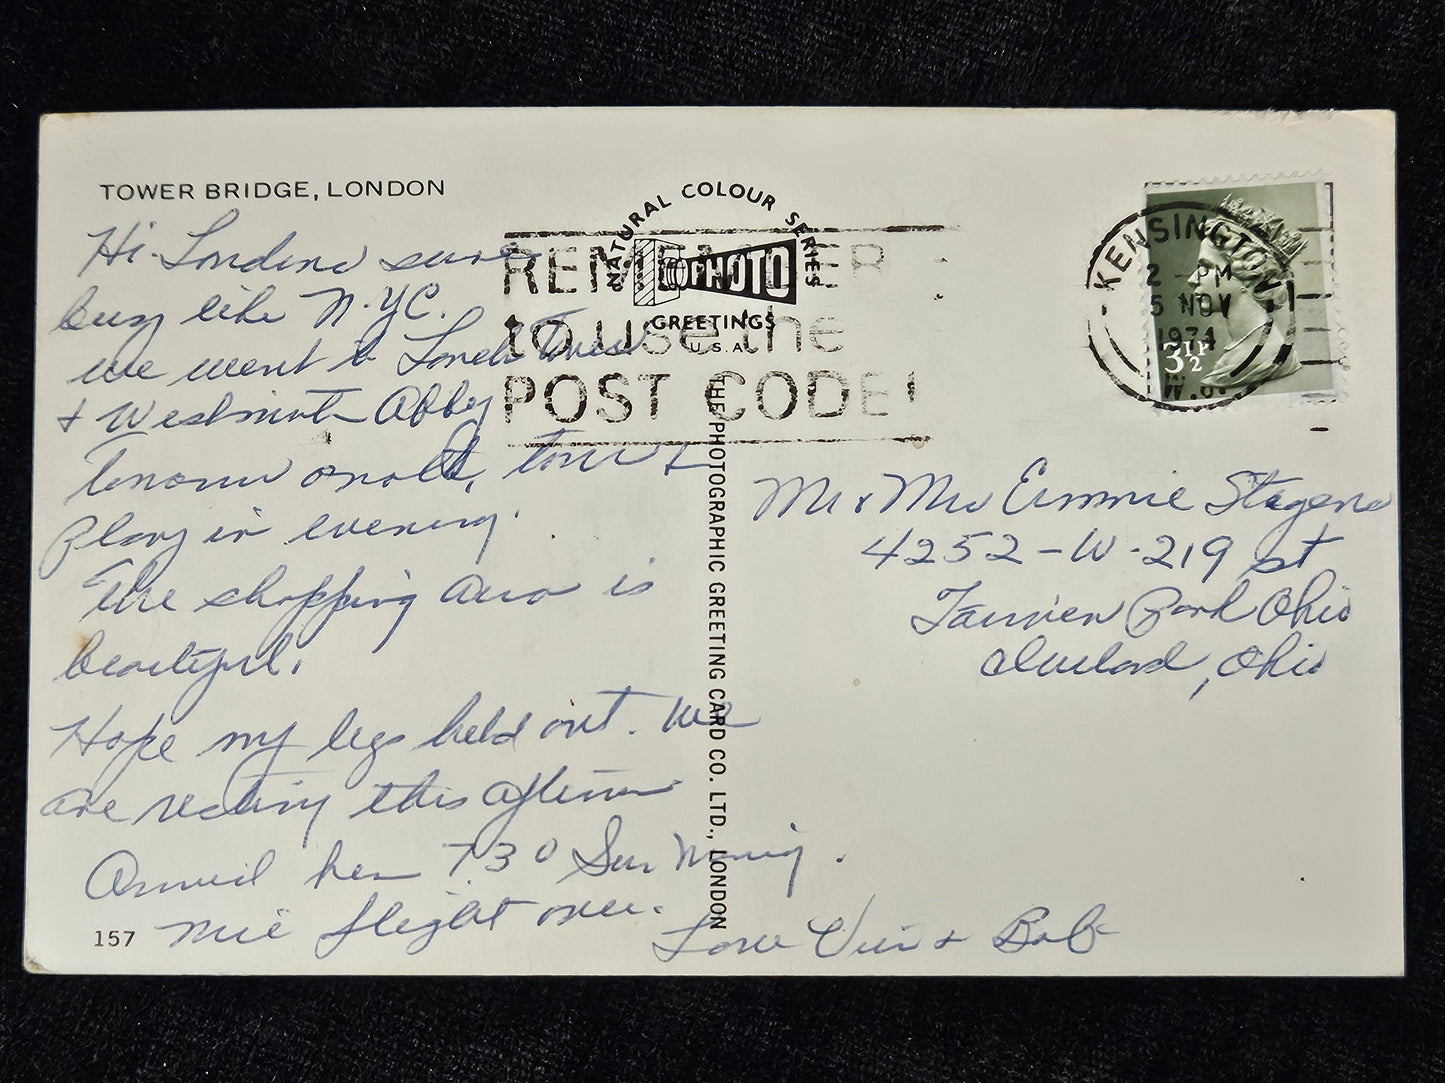 TOWER BRIDGE, LONDON
Hi - London sure
busy like N.Y.C.
We went to London Tower
+ Westminster Abbey
Tomorrow another tour +
Play in evening.
The shopping area is
beautiful.
Hope my legs hold out. We
are resting this afternoon
Arrived here 730 Sun Morning.
Nice flight over.
Love Vivi + Bob
157
NATURAL COLOUR SERIES
PHOTO
GREETINGS
U.S.A.
THE PHOTOGRAPHIC GREETING CARD CO. LTD., LONDON
REMEMBER
to use the
POST CODE!
KENSINGTON
2 - PM
5 NOV
1974
W.8.
3½P
Mr & Mrs Emmie Stagens
4252 - W - 219 st
Fairview Park Ohio
Cleveland, Ohio